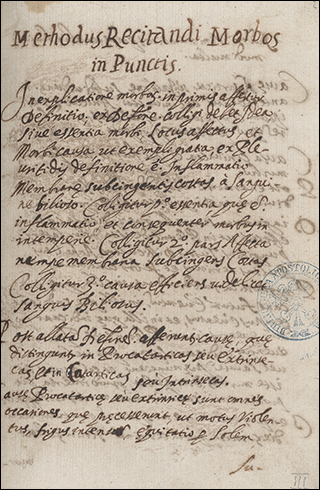 Methodus Recitandi Morbos
in Punctis.
In explicatione morbor. in primis affertur
definitio, ex definne. colligi debet Idea
siue essentia morbi Locus affectus et
Morbi causa ut exempli grata ex Pleu
ritidis definitione é Inflammatio
Membranę subcingentis costas à sangui
ne bilioso. Colligitur pº essentia quę é
inflammatio et consequenter morbus in
intemperie. Colligitur 2º pars Affecta
nempe membrana subcingens costas
Colligitur 3º causa efficiens videlicet
sanguis Biliosus.
Post allata asserunt. causę, quę
distinguntr in Procatarticas seu extrinse
cas et in
seu Intrinsecas.
ausę Procatarticę seu extrinsecę sunt omnes
occasiones quę ut motus violen
tus, frigus intensus equitatio
su-
III